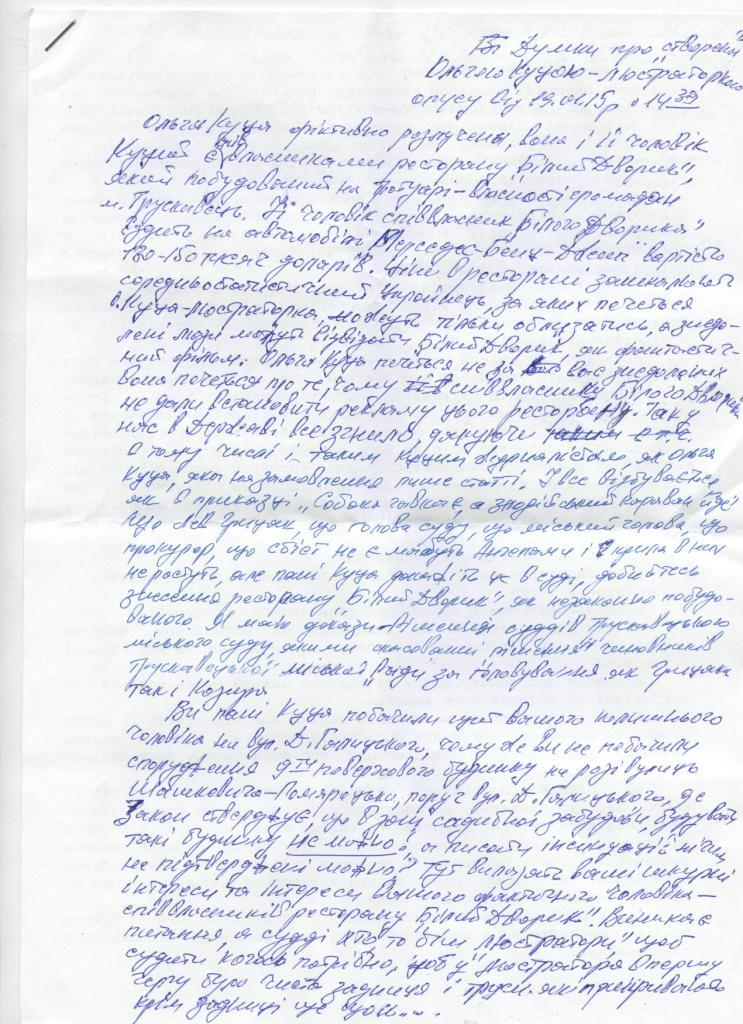 Думки про створений
Ольгою Куцою-Люстраторкою
опусу від 19.01.15 р о 14 39
Ольга Куца фіктивно розлучена, вона і її чоловік
Куций є власниками ресторану "Білий Дворик",
який побудований на тротуарі-власності громадян
м. Трускавець. Її чоловік співвласник "Білого Дворика"
їздить на автомобілі "Мерседес-Бенц- вартістю
130-150 тисяч доларів. Ціни в ресторані
середньостатистичний Українець, за яких печеться
О. Куца-Люстраторка, можуть тільки облизатись, а знедо-
лені люди можуть відвідати Білий Дворик, як фантастич-
ний фільм. Ольга Куца печеться не за вас знедолених
вона печеться про те, чому співвласнику Білого Дворика
не дали встановити рекламу цього ресторану. Так у
нас в Державі все згнило, дякуючи
в тому числі і таким Куцим журналістам як Ольга
Куца, яка на замовлення пише статті. І все відбувається
як в приказці "Собака гавкає, а злодійський караван йде"
Що Лев Грицак, що голова суду, що міський голова, що
прокурор, що не є мабуть Ангелами і крила в них
не ростуть, але пані Куца докажіть це в суді, добийтесь
знесення ресторану "Білий Дворик", як незаконно побудо-
ваного. Я маю докази суддів Трускавецького
міського суду, якими скасовані рішення чиновників
Трускавецької міської Ради за головування як Грицака
так і Козира
Ви пані Куца побачили колишнього
чоловіка на вул. Д. Галицького, чому ж ви не побачили
спорудження 9ти поверхового будинку на розі вулиць
Шашкевича-Помярецької, поруч вул. Д. Галицького, де
Закон стверджує, що в зоні садибної забудови, будувати
такі будинки не можно, а писати інсинуації нічим
не підтверджені можно? Тут вилазять ваші шкурні
інтереси та інтереси Вашого фактичного чоловіка-
співвласників ресторану "Білий Дворик". Виникає
питання, а судді хто то біш "Люстратори" щоб
судити когось потрібно, щоб у "Люстратора в першу
чергу було чиста задниця і труси які прикривають
крім задниці ще щось....